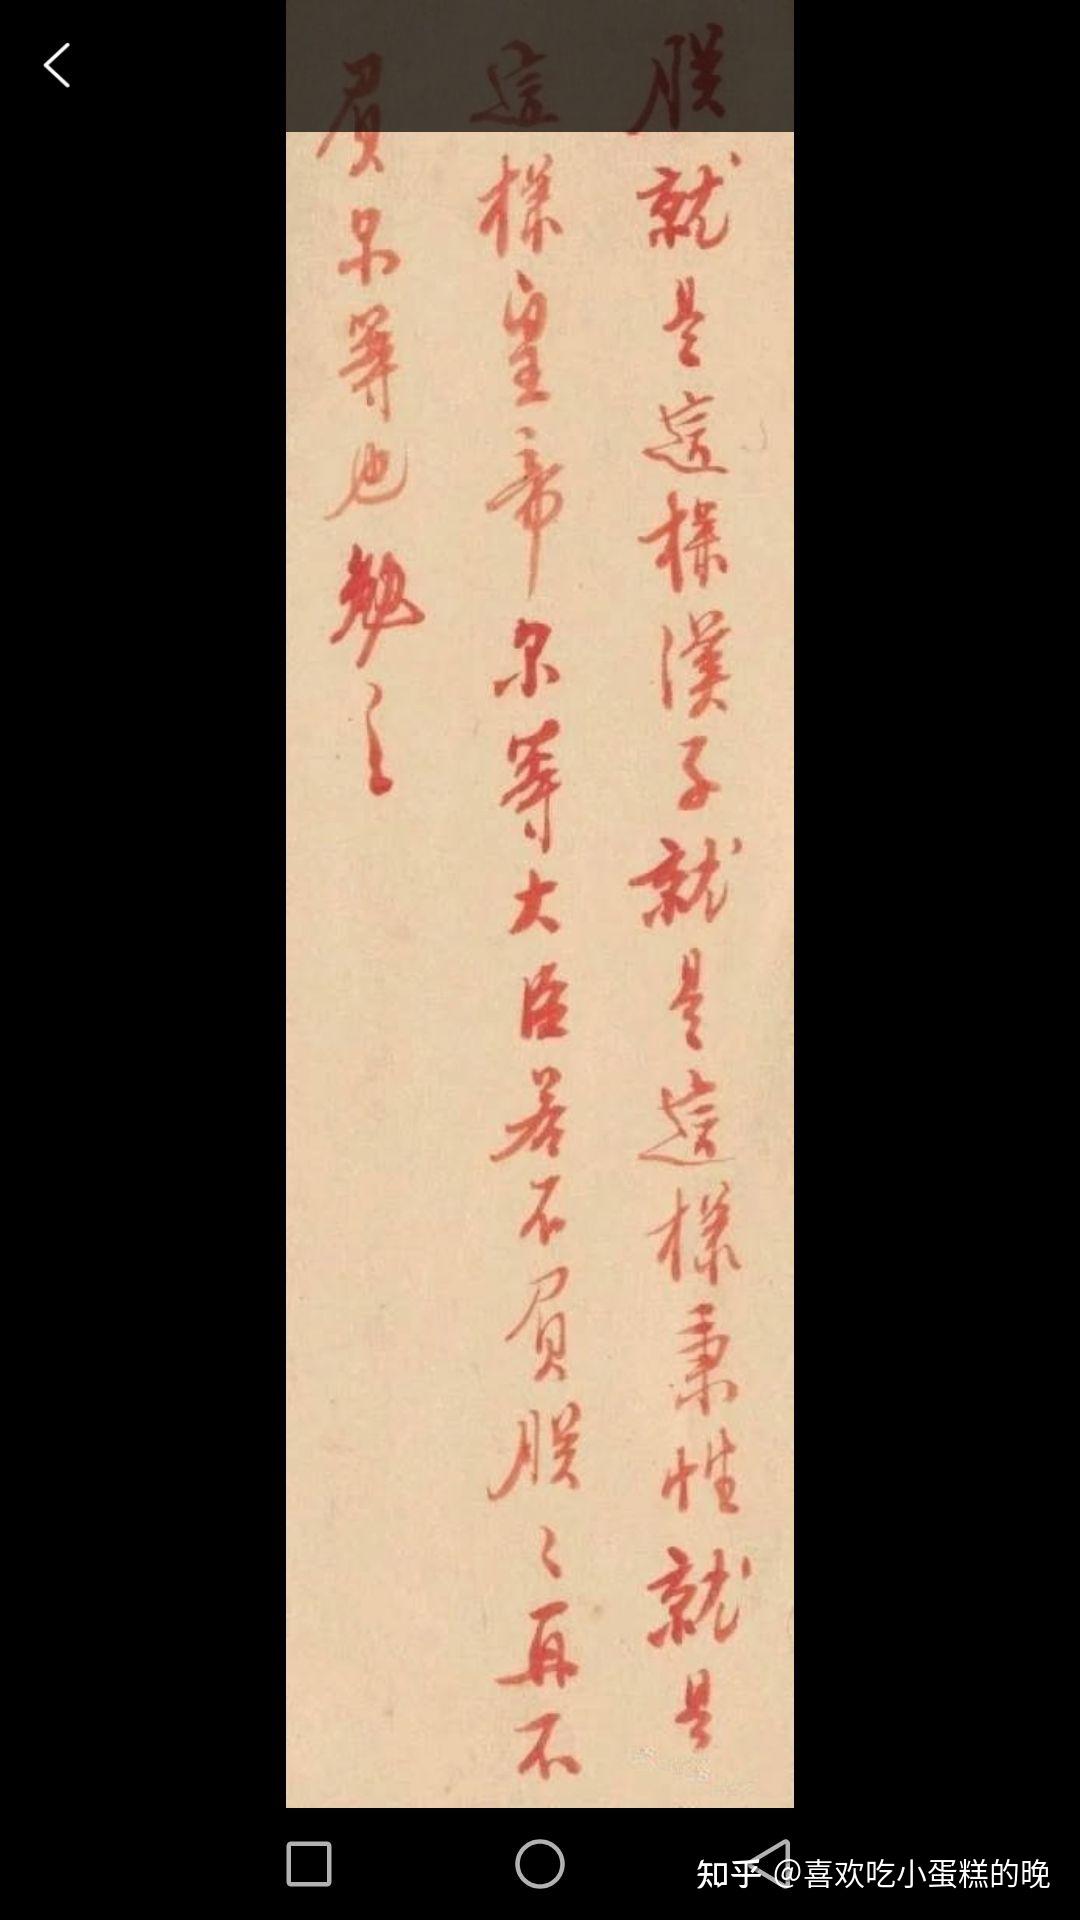 朕就是這樣漢子就是這樣秉性就是
這樣皇帝尔等大臣若不負朕〻再不
負尔等也勉之
知乎 @喜欢吃小蛋糕的晚